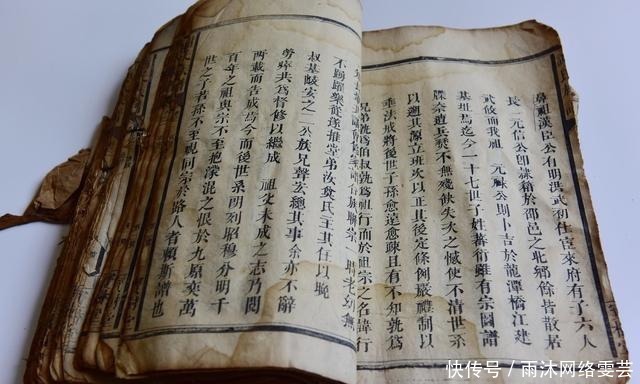 鼻祖漢臣公有明洪武初仕宦來府有子六人
長 元信公卽隸籍於邵邑之北鄉餘皆散居
武攸而我祖 元祿公則卜吉於龍潭橋江建
基址焉迄今一十七世子姓蕃衍雖有宗圖譜
牒奈遭兵燹不無殘缺失次之憾使不清世系
以遡其源立班次以正其後定條例嚴禮制以
垂法戒將後世子孫愈遠愈踈且有不知孰爲
兄弟孰爲伯叔孰爲祖行而於祖宗之名諱行
不踴躍樂從遂推堂弟汝贊氏主其任以晚
叔基酸安之二公族兄聲炎總其事余亦不辭
勞瘁共爲督修以繼成 祖父未成之志乃閱
兩載而告成焉今而後世系明列昭穆分明千
百年之祖與宗不至抱濛混之恨於九原奕萬
世之子若孫不至視同宗於路人者賴斯譜也
快传号 / 雨沐网络雯芸